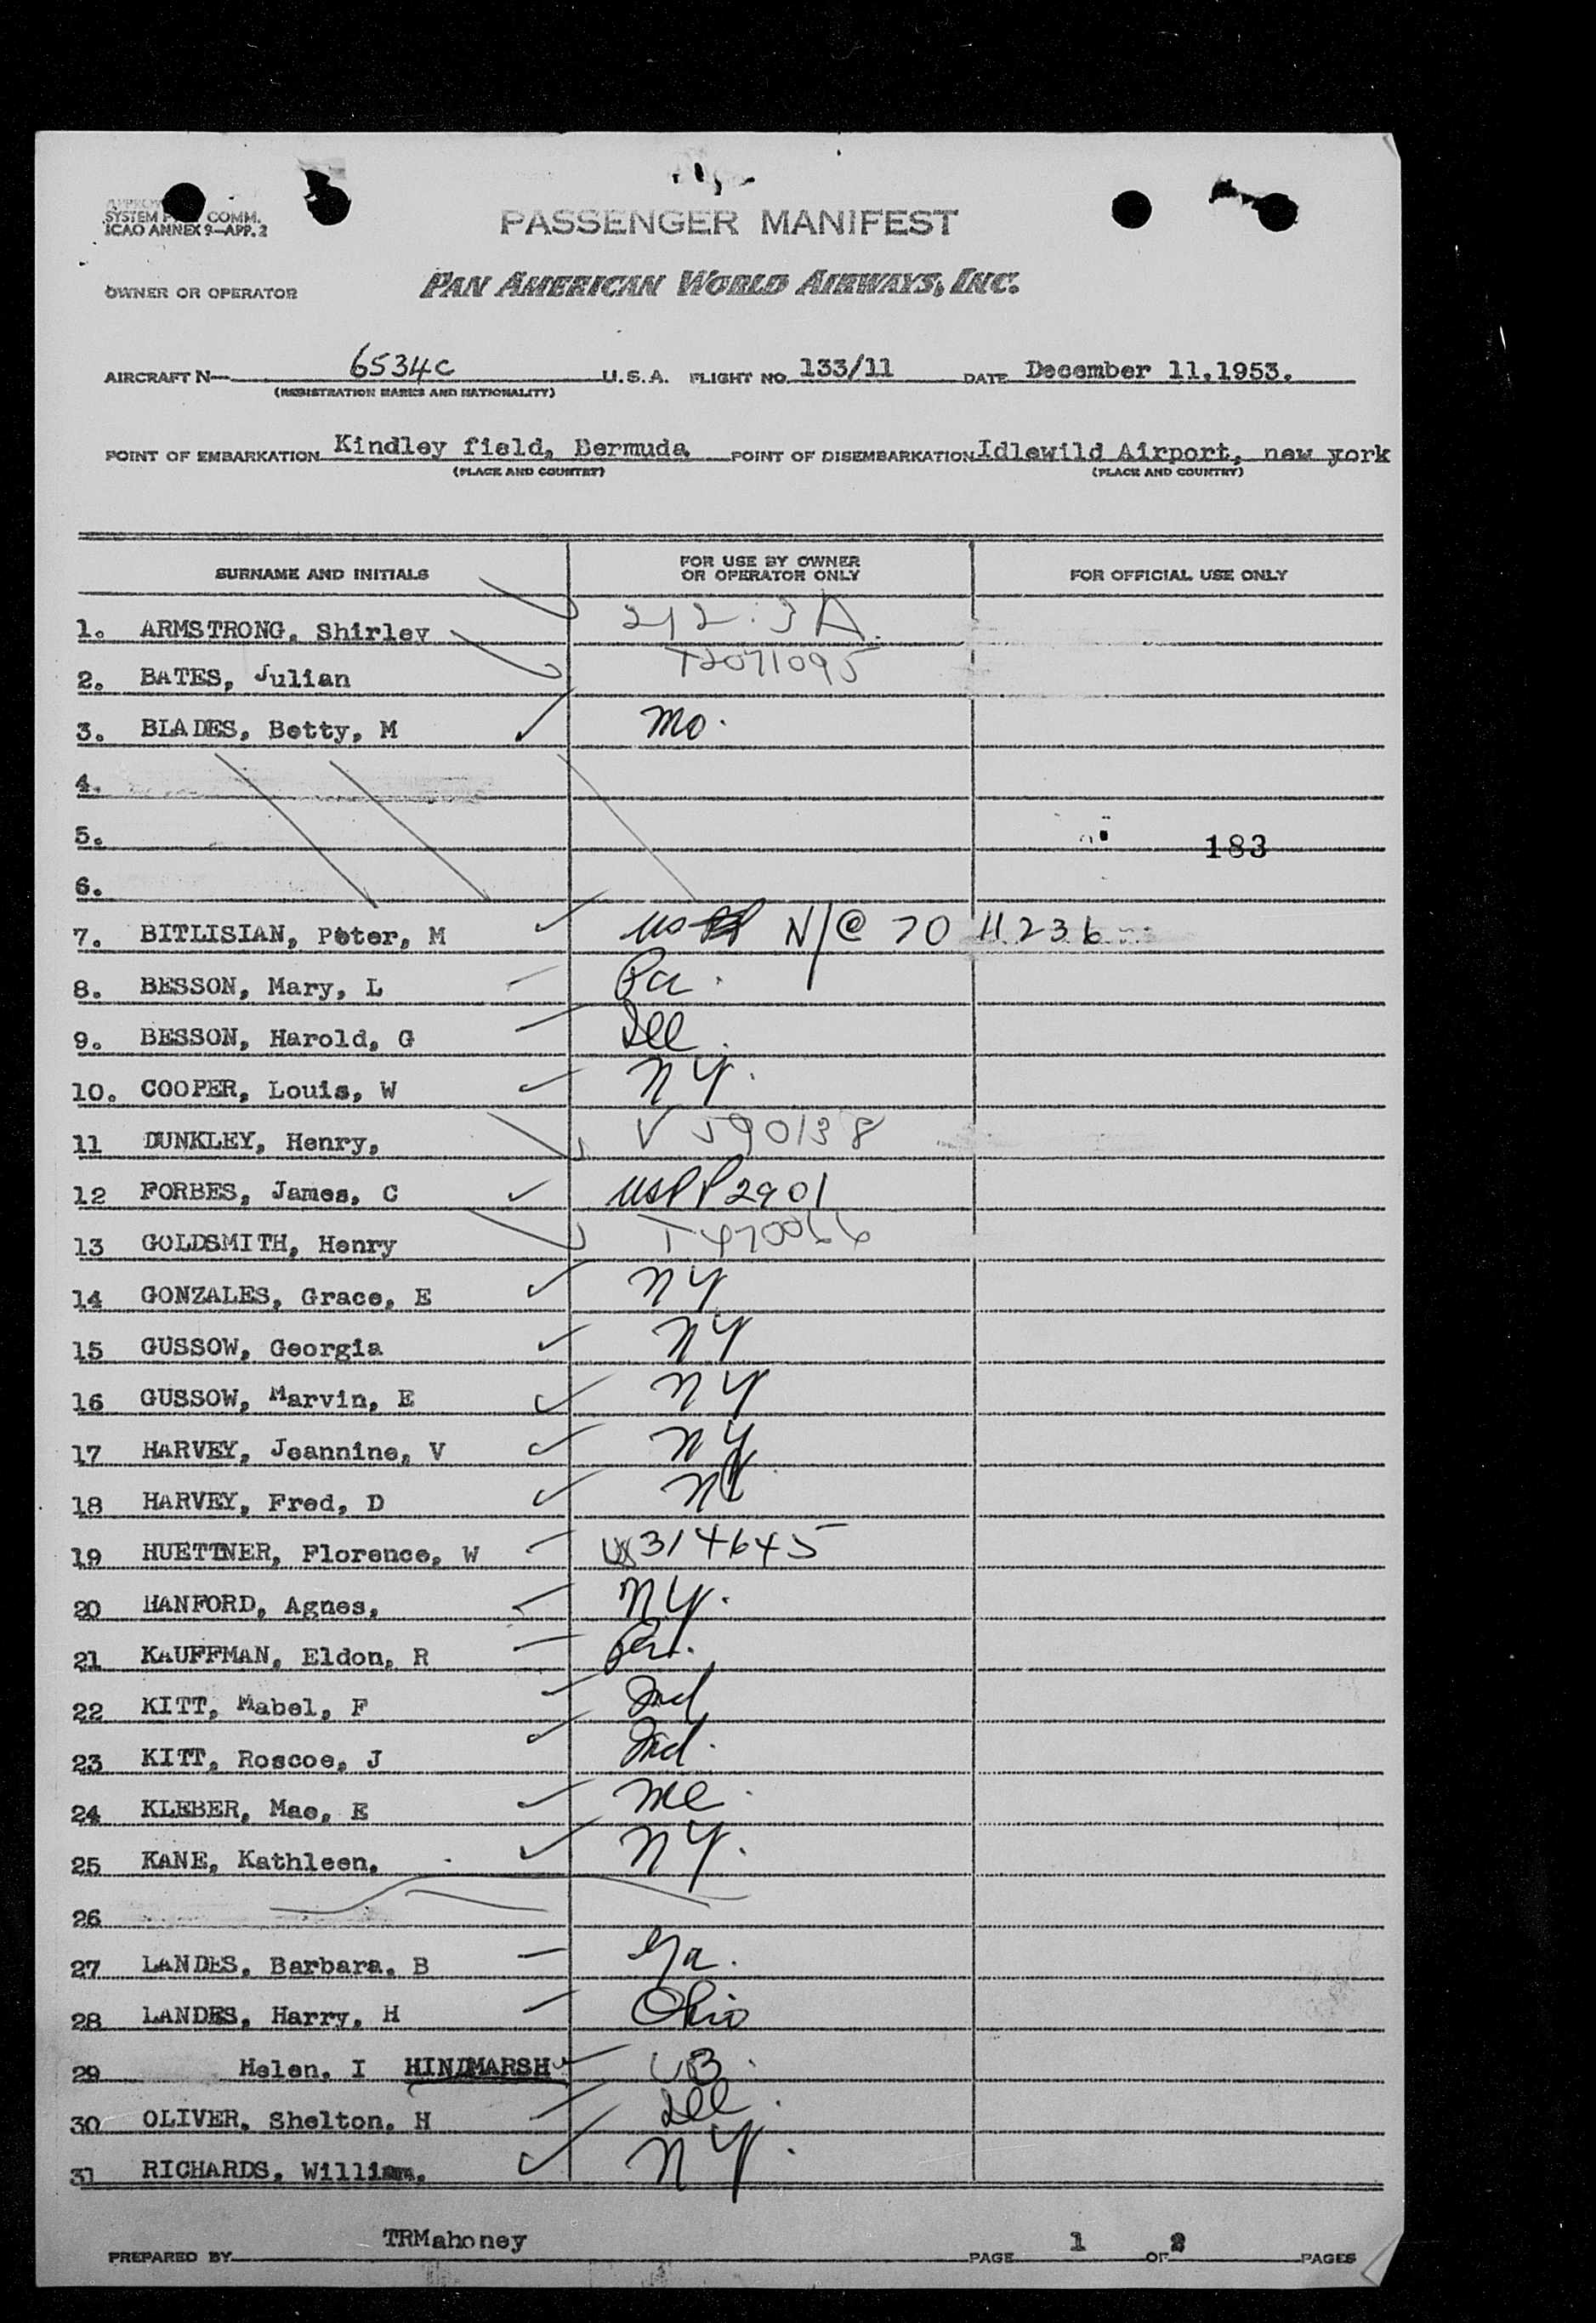 SYSTEM COMM.
ICAO ANNEX 9—APP. 2
PASSENGER MANIFEST
OWNER OR OPERATOR PAN AMERICAN WORLD AIRWAYS, INC.
AIRCRAFT N— 6534C U.S.A. FLIGHT NO. 133/11 DATE December 11,1953.
(REGISTRATION MARKS AND NATIONALITY)
POINT OF EMBARKATION Kindley field, Bermuda POINT OF DISEMBARKATION Idlewild Airport, new york
(PLACE AND COUNTRY) (PLACE AND COUNTRY)
SURNAME AND INITIALS FOR USE BY OWNER OR OPERATOR ONLY FOR OFFICIAL USE ONLY
1. ARMSTRONG, Shirley 212.3A.
2. BATES, Julian T2071095
3. BLADES, Betty, M Mo.
4.
5. 183
6.
7. BITLISIAN, Peter, M N/@ 70 11236
8. BESSON, Mary, L Pa.
9. BESSON, Harold, G Ill.
10. COOPER, Louis, W NY.
11 DUNKLEY, Henry, V 590138
12 FORBES, James, C USPP 2901
13 GOLDSMITH, Henry T470066
14 GONZALES, Grace, E NY
15 GUSSOW, Georgia NY
16 GUSSOW, Marvin, E NY
17 HARVEY, Jeannine, V NY
18 HARVEY, Fred, D NY
19 HUETTNER, Florence, W 314645
20 HANFORD, Agnes, N.Y.
21 KAUFFMAN, Eldon, R Pa.
22 KITT, Mabel, F Ind
23 KITT, Roscoe, J Ind.
24 KLEBER, Mae, E Me.
25 KANE, Kathleen, NY.
26
27 LANDES, Barbara, B Ga.
28 LANDES, Harry, H Ohio
29 Helen, I HINDMARSH
30 OLIVER, Shelton, H Ill.
31 RICHARDS, William, NY.
PREPARED BY TRMahoney PAGE 1 OF 2 PAGES